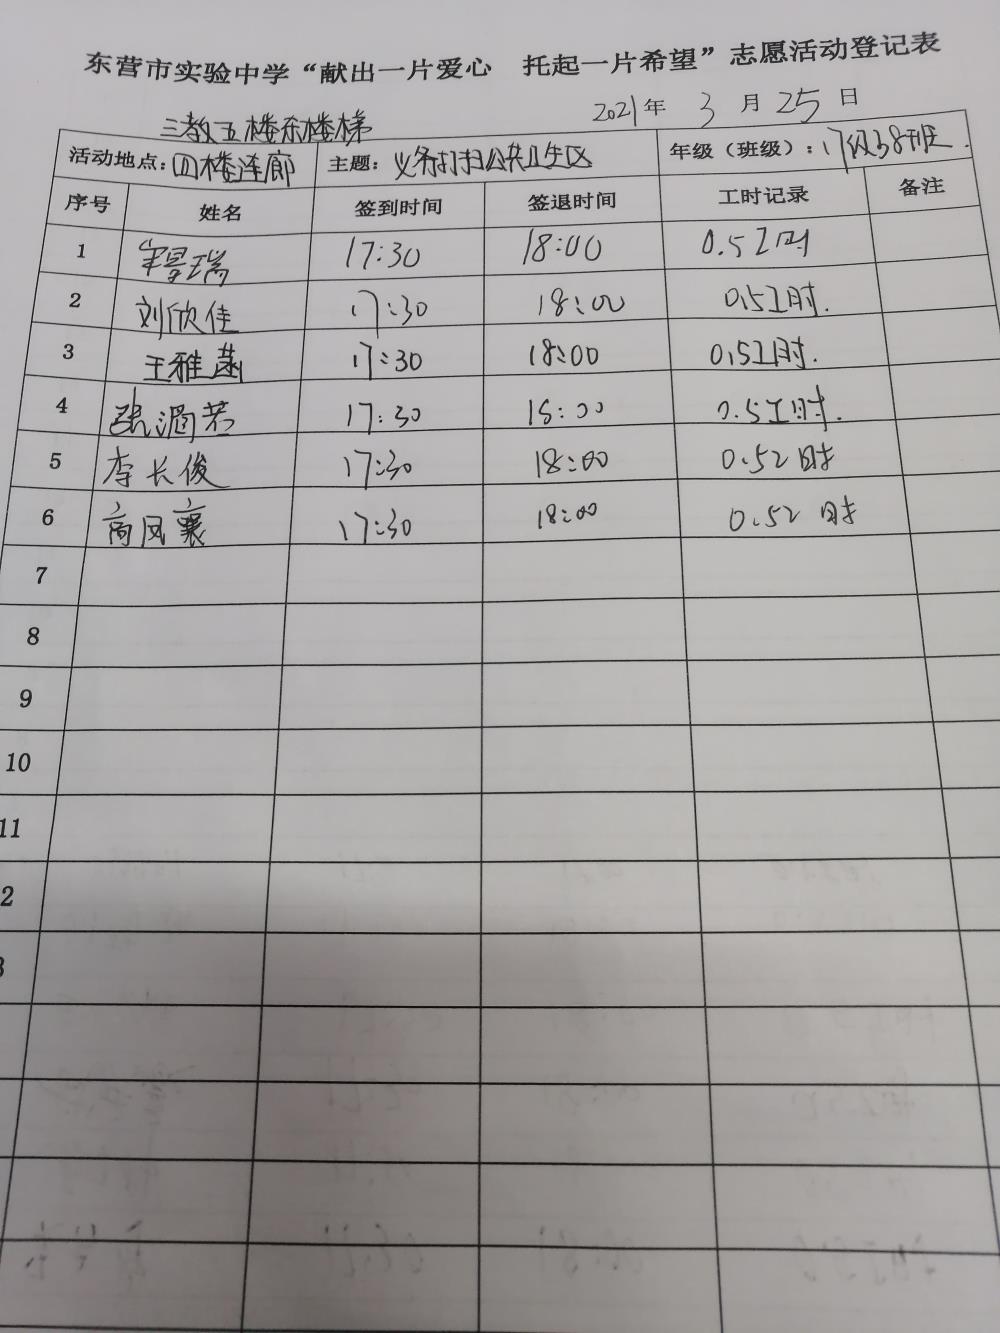 东营市实验中学“献出一片爱心 托起一片希望”志愿活动登记表
2021年 3 月 25 日
三教五楼东楼梯
活动地点：四楼连廊 主题：义务打扫公共卫生区 年级（班级）：17级38班.
序号 姓名 签到时间 签退时间 工时记录 备注
1 17:30 18:00 0.5工时
2 刘欣佳 17:30 18:00 0.5工时.
3 王雅菡 17:30 18:00 0.5工时.
4 张 若 17:30 18:00 0.5工时.
5 李长俊 17:30 18:00 0.52时
6 高凤襄 17:30 18:00 0.52时
7
8
9
10
11
2
3